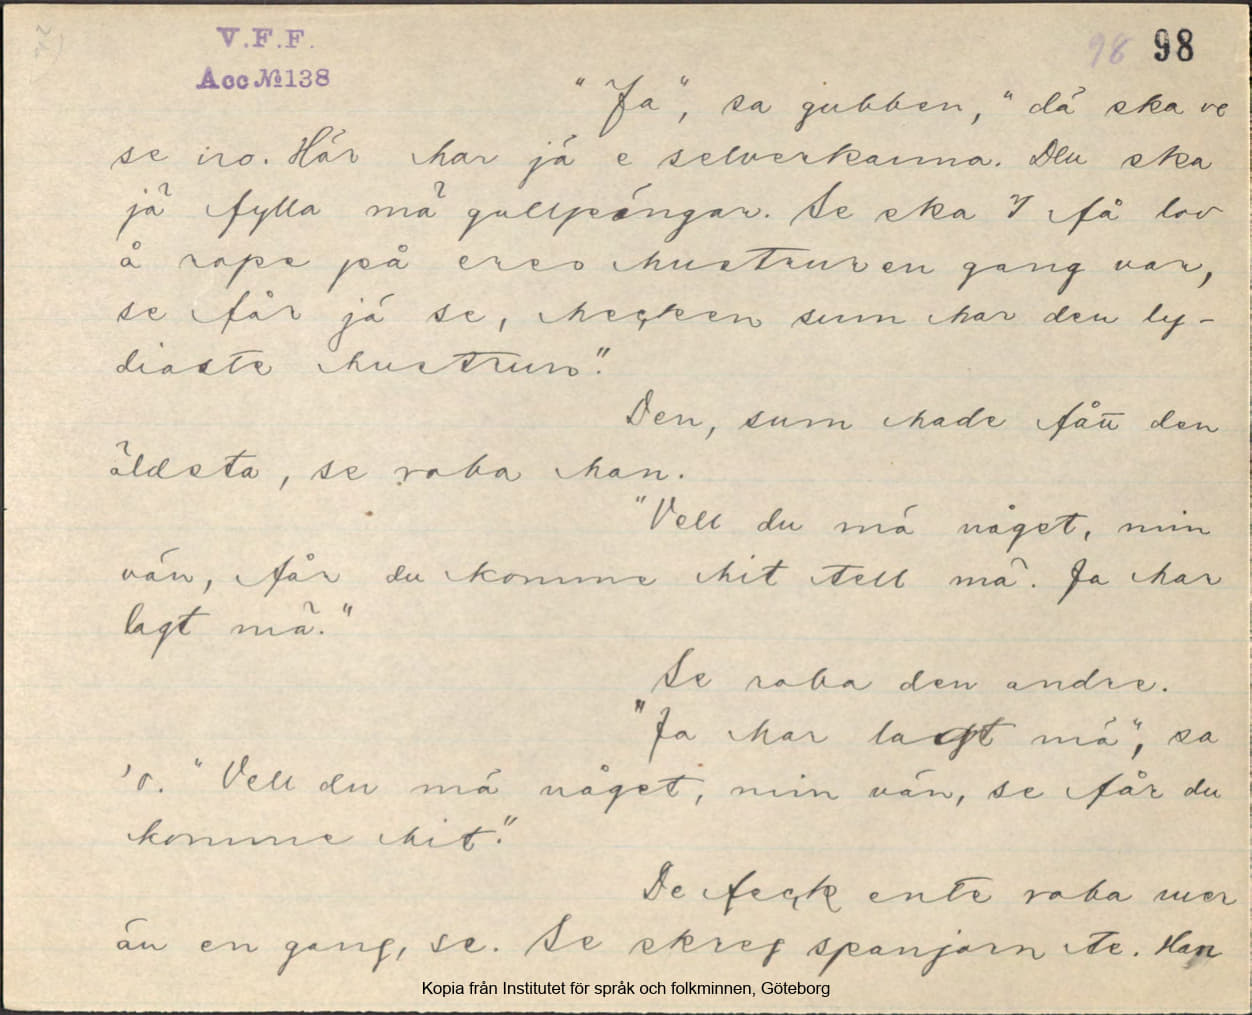 V.F.F.
Acc №138
98 98
"Ja", sa gubben, "dá ska ve
se iro. Hár har já e selverkanna. Den ska
já fylla má gullpéngar. Se ska I få lov
å rope på eres hustrur en gang var,
se får já se, hecken sum har den ly-
diaste hustrun".
Den, sum hade fått den
äldsta, se roba han.
"Vell du má någet, min
ván, får du komme hit tell má. Ja har
lagt má."
Se roba den andre.
"Ja har lagt má", sa
'o. "Vell du má någet, min ván, se får du
komme hit."
De feck ente roba mer
án en gang, se. Se skreg spanjorn te. Han
Kopia från Institutet för språk och folkminnen, Göteborg